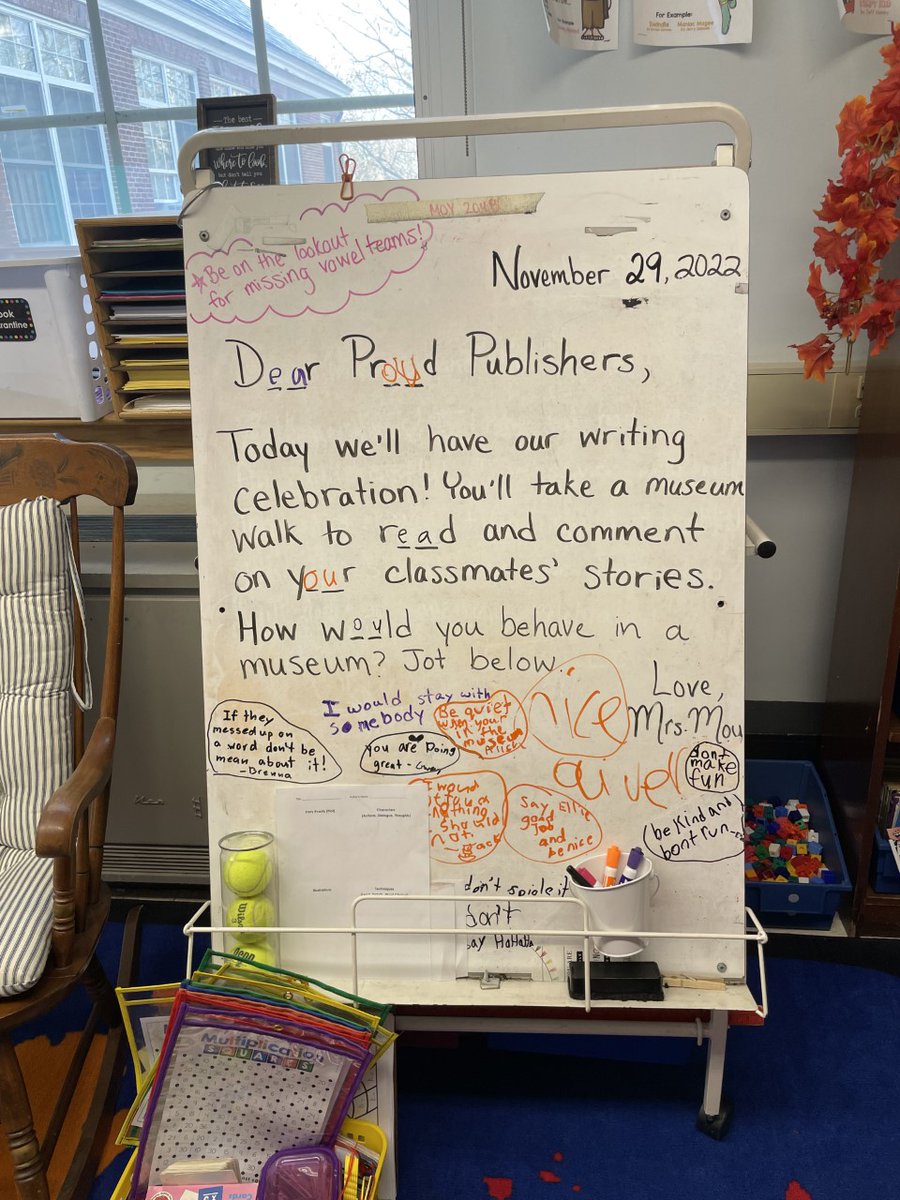 For Example:
For Example:
The best
where to look
but don't tell you
MOY 204B
*Be on the lookout
for missing vowel teams!
November 29, 2022
Dear Proud Publishers,
Today we'll have our writing
celebration! You'll take a museum
walk to read and comment
on your classmates' stories.
How would you behave in a
museum? Jot below.
Love,
Mrs. Moy
If they
messed up on
a word don't be
mean about it!
-Brenna
I would stay with
somebody
you are Doing
great -
Be quiet
when your
in the
museum
nice
dont
make
fun
I would
nothing
should
not.
Say
good
job
and
be nice
be kind and
bont run
don't spiole it
don't
say HaHaHa
Wilson
Multiplication
SQUARES
Cards